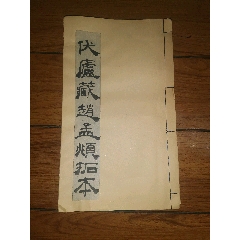 伏廬藏趙孟頫拓本